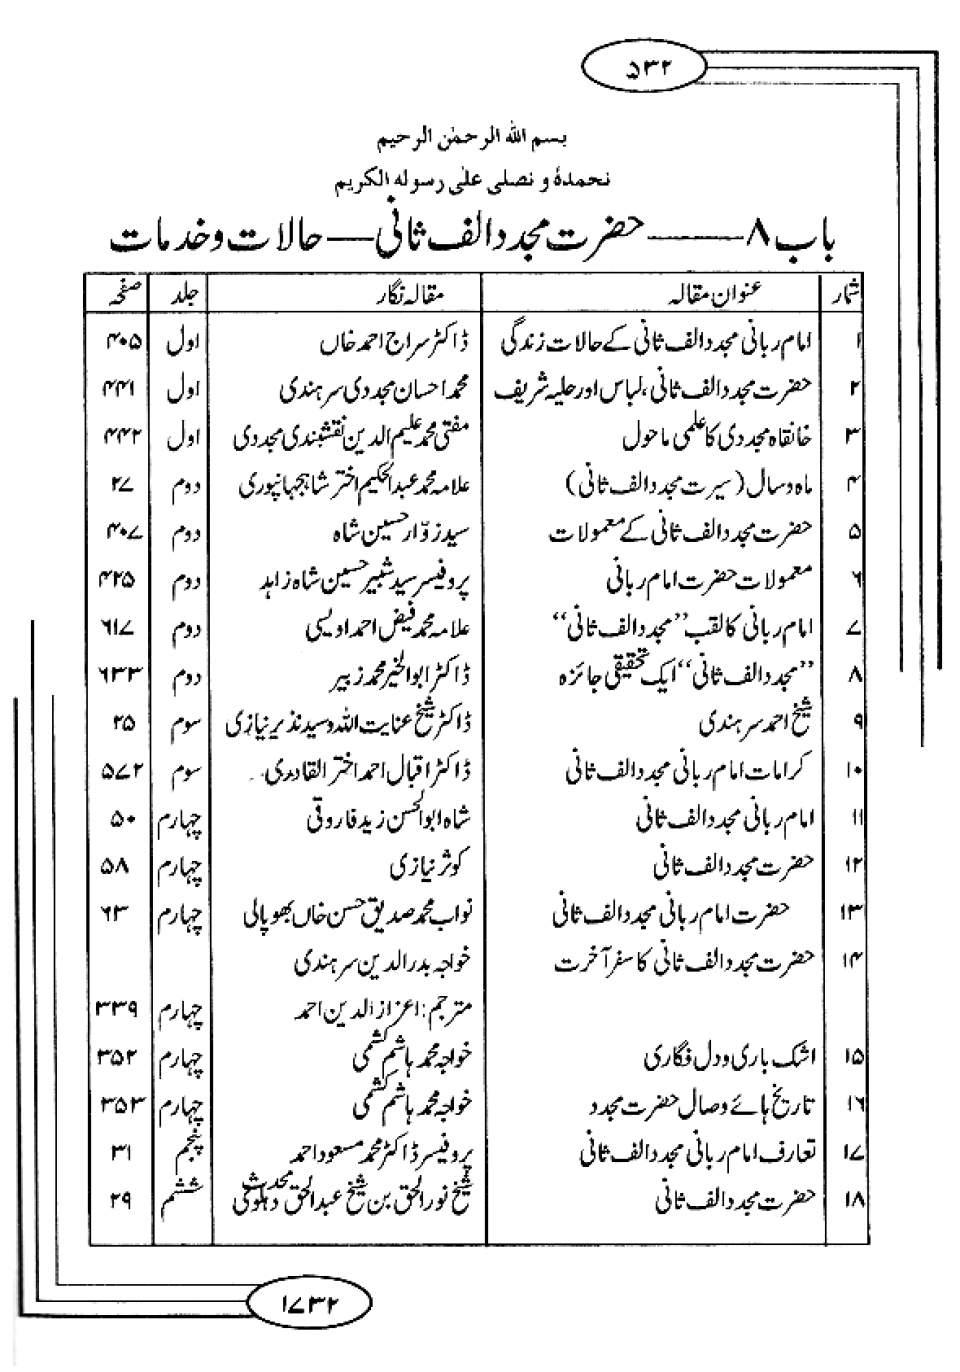 ۵۳۲
بسم الله الرحمٰن الرحیم
نحمدہٗ و نصلی علیٰ رسولہ الکریم
باب ۸ ——— حضرت مجدد الف ثانی — حالات و خدمات
شمار عنوان مقالہ مقالہ نگار جلد صفحہ
۱ امام ربانی مجدد الف ثانی کے حالات زندگی ڈاکٹر سراج احمد خاں اول ۴۰۵
۲ حضرت مجدد الف ثانی، لباس اور حلیہ شریف محمد احسان مجددی سرہندی اول ۴۴۱
۳ خانقاہ مجددی کا علمی ماحول مفتی محمد علیم الدین نقشبندی مجددی اول ۴۴۲
۴ ماہ و سال (سیرت مجدد الف ثانی) علامہ محمد عبدالحکیم اختر شاہجہانپوری دوم ۲۷
۵ حضرت مجدد الف ثانی کے معمولات سید زوّار حسین شاہ دوم ۴۰۷
۶ معمولات حضرت امام ربانی پروفیسر سید شبیر حسین شاہ زاہد دوم ۴۲۵
۷ امام ربانی کا لقب ”مجدد الف ثانی“ علامہ محمد فیض احمد اویسی دوم ۶۱۷
۸ ”مجدد الف ثانی“ ایک تحقیقی جائزہ ڈاکٹر ابوالخیر محمد زبیر دوم ۶۳۳
۹ شیخ احمد سرہندی ڈاکٹر شیخ عنایت اللہ و سید نذیر نیازی سوم ۲۵
۱۰ کرامات امام ربانی مجدد الف ثانی ڈاکٹر اقبال احمد اختر القادری سوم ۵۷۲
۱۱ امام ربانی مجدد الف ثانی شاہ ابوالحسن زید فاروقی چہارم ۵۰
۱۲ حضرت مجدد الف ثانی کوثر نیازی چہارم ۵۸
۱۳ حضرت امام ربانی مجدد الف ثانی نواب محمد صدیق حسن خاں بھوپالی چہارم ۶۳
۱۴ حضرت مجدد الف ثانی کا سفر آخرت خواجہ بدرالدین سرہندی
مترجم: اعزاز الدین احمد چہارم ۳۳۹
۱۵ اشک باری و دل فگاری خواجہ محمد ہاشم کشمی چہارم ۳۵۲
۱۶ تاریخ ہائے وصال حضرت مجدد خواجہ محمد ہاشم کشمی چہارم ۳۵۳
۱۷ تعارف امام ربانی مجدد الف ثانی پروفیسر ڈاکٹر محمد مسعود احمد پنجم ۳۱
۱۸ حضرت مجدد الف ثانی شیخ نورالحق بن شیخ عبدالحق محدث دہلوی ششم ۲۹
۱۷۳۲